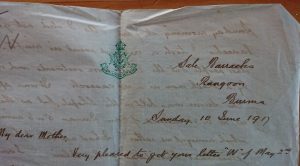 Sale Barracks
Rangoon
Burma
Sunday, 10 June 1917
My dear Mother,
Very pleased to get your letter "N" of May 3rd